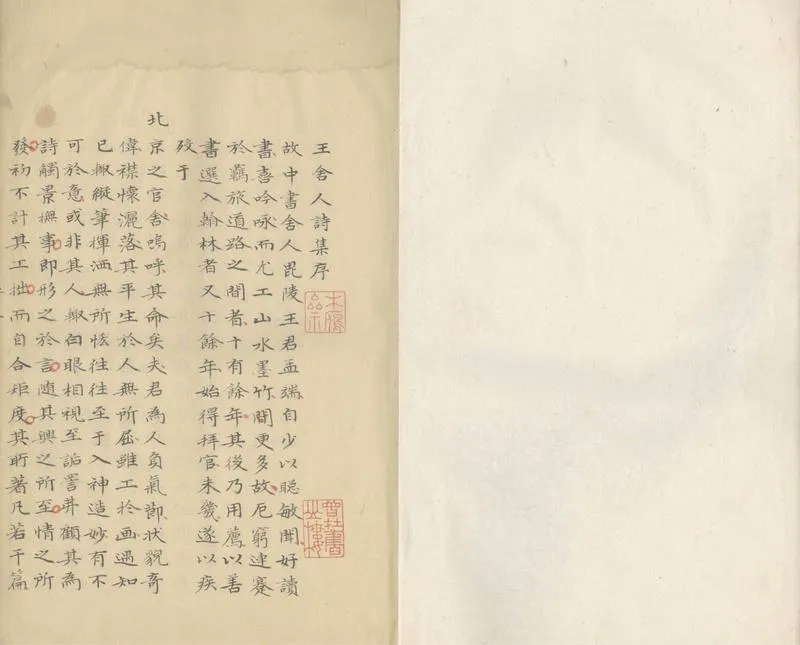 王舍人詩集序
故中書舍人毘陵王君孟端自少以聰敏聞好讀
書喜吟咏而尤工山水墨竹間更多故厄窮連蹇
於羈旅道路之間者十有餘年其後乃用薦以善
書選入翰林者又十餘年始得拜官未幾遂以疾
歿于
北京之官舍嗚呼其命矣夫君為人負氣節狀貌奇
偉襟懷灑落其平生於人無所屈雖工於画遇知
已輙縱筆揮洒無所恡往往至于入神造妙有不
可於意或非其人輙白眼相視至詬詈弗顧其為
詩觸景撫事即形之於言隨其興之所至情之所
發初不計其工拙而自合矩度其所著凡若干篇